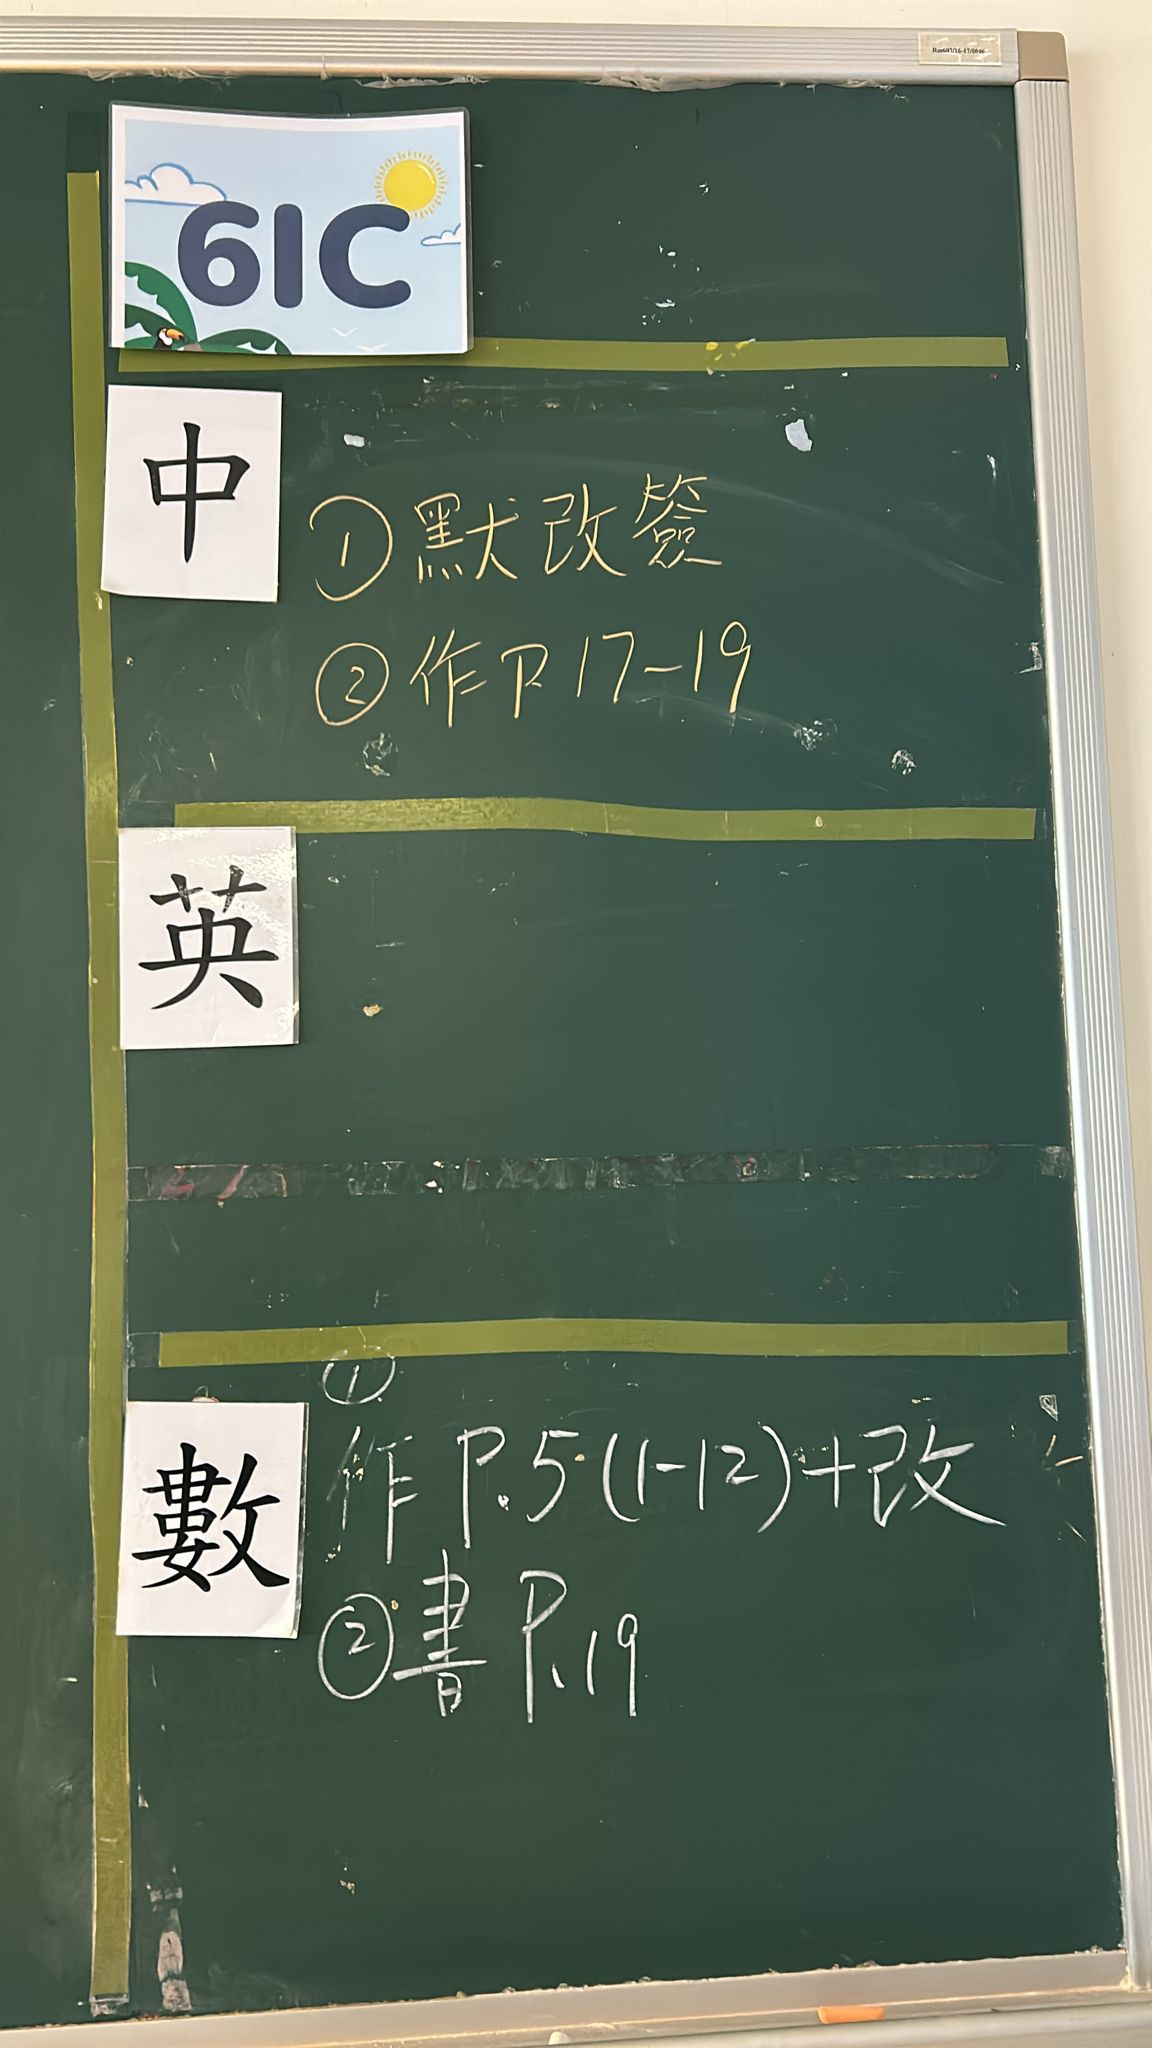 6IC
中
①默改簽
②作P.17-19
英
數
①
作P.5(1-12)+改
②書P.19